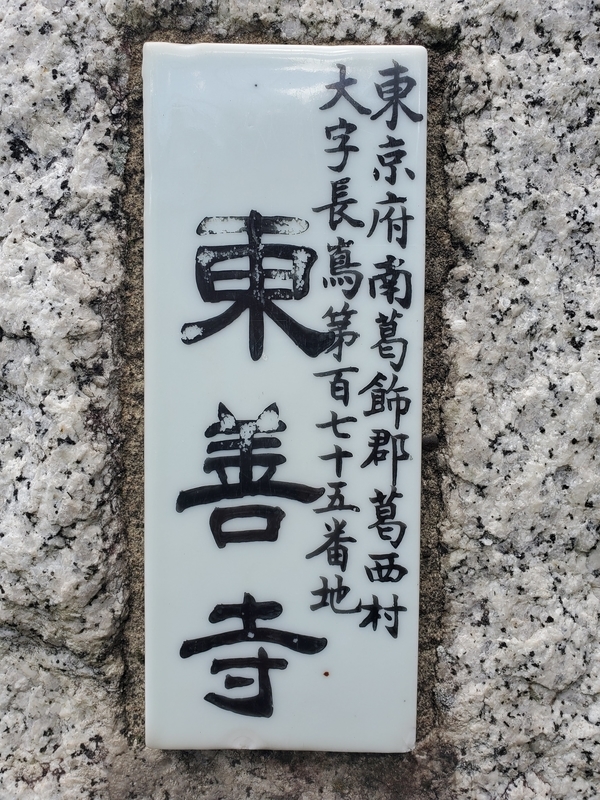 東京府南葛飾郡葛西村
大字長嶌第百七十五番地
東善寺